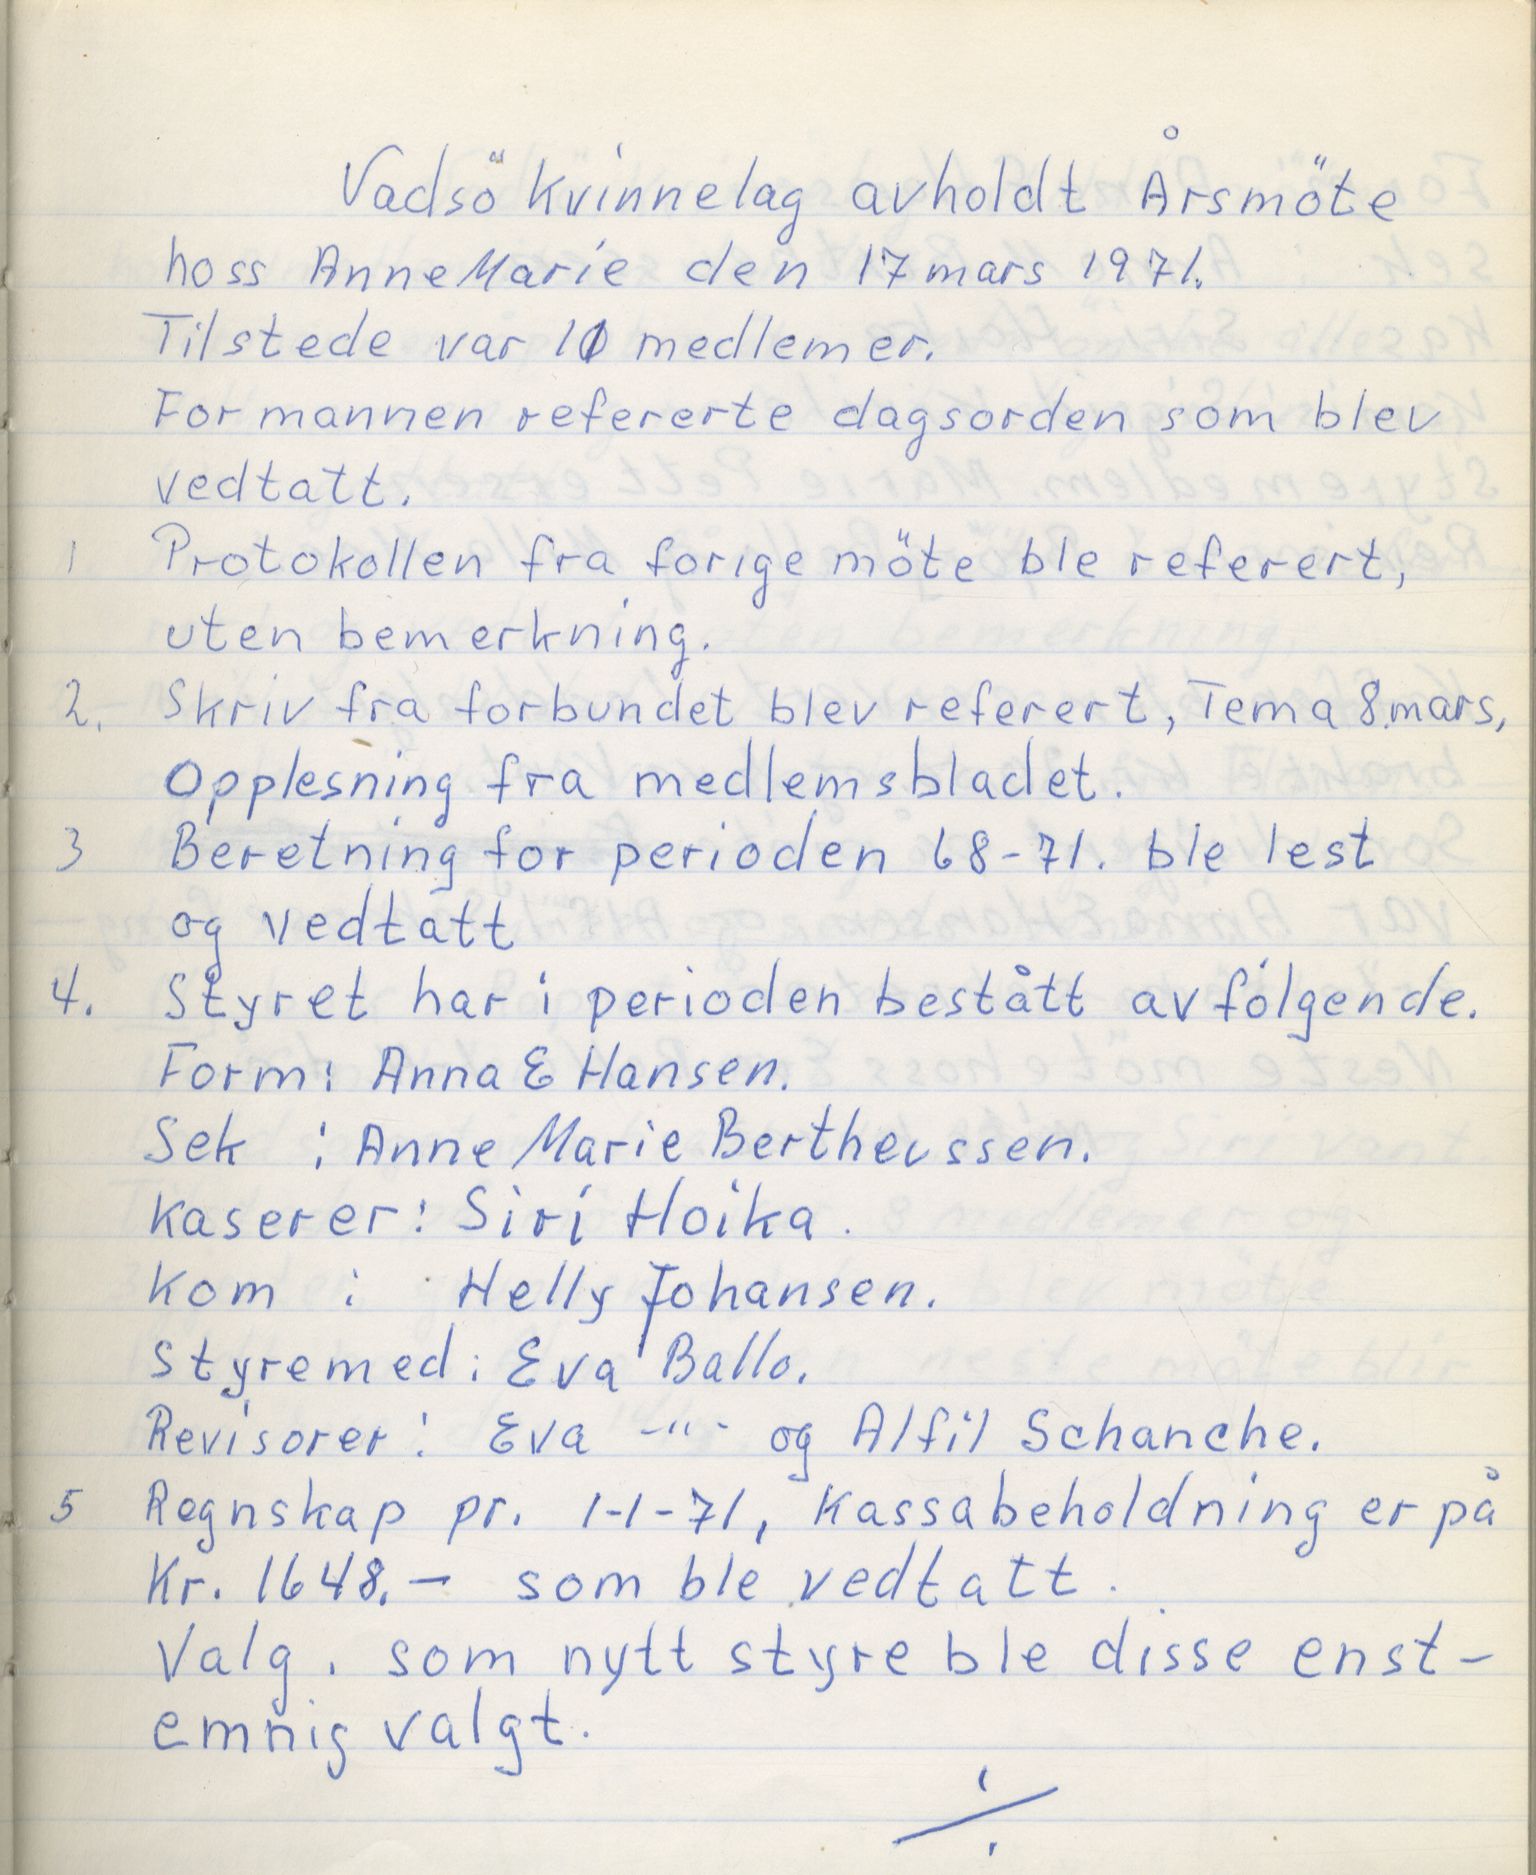 Vadsö Kvinnelag avholdt Årsmöte
hoss Anne Marie den 17 mars 1971.
Tilstede var 10 medlemer.
Formannen refererte dagsorden som blev
vedtatt.
1 Protokollen fra forige möte ble referert,
uten bemerkning.
2. Skriv fra forbundet blev referert, Tema 8.mars,
Opplesning fra medlemsbladet.
3 Beretning for perioden 68-71. ble lest
og vedtatt
4. Styret har i perioden bestått av fólgende.
Form: Anna E Hansen.
Sek : Anne Marie Bertheussen.
Kaserer: Siri Hoika.
Kom : Helly Johansen.
Styremed: Eva Ballo.
Revisorer: Eva -"- og Alfil Schanche.
5 Regnskap pr. 1-1-71, Kassabeholdning er på
Kr. 1648.- som ble vedtatt.
Valg. som nytt styre ble disse enst-
emnig valgt.
./.